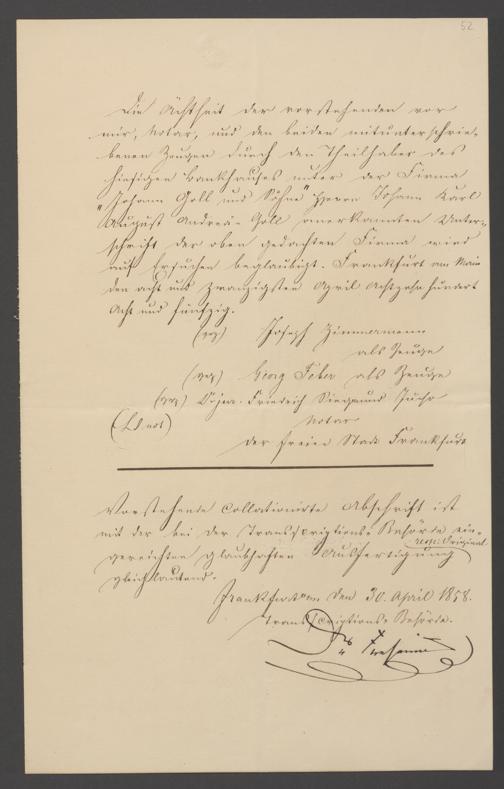 52
Die Ächtheit der vorstehenden vor
mir, Notar, und den beiden mitunterschrie-
benen Zeugen durch den Theilhaber des
hiesigen Bankhauses unter der Firma
"Johann Goll und Söhne" Herrn Johann Karl
August Andreä-Goll anerkannten Unter-
schrift der oben gedachten Firma wird
auf Ersuchen beglaubigt. Frankfurt am Main
den acht und zwanzigsten April Achtzehnhundert
Acht und fünfzig.
(gez) Joseph Zimmermann
als Zeuge
(gez) Georg Faber als Zeuge
(gez) Friedrich Siegmund Jucho
Notar
(L.S. not)
der freien Stadt Frankfurt
Vorstehende collationirte Abschrift ist
mit der bei der Transscriptions-Behörde ein-
resp: Original
gereichten glaubhaften Ausfertigung
gleichlautend.
Frankfurt a/m den 30. April 1858.
Transscriptions-Behörde.
Dr